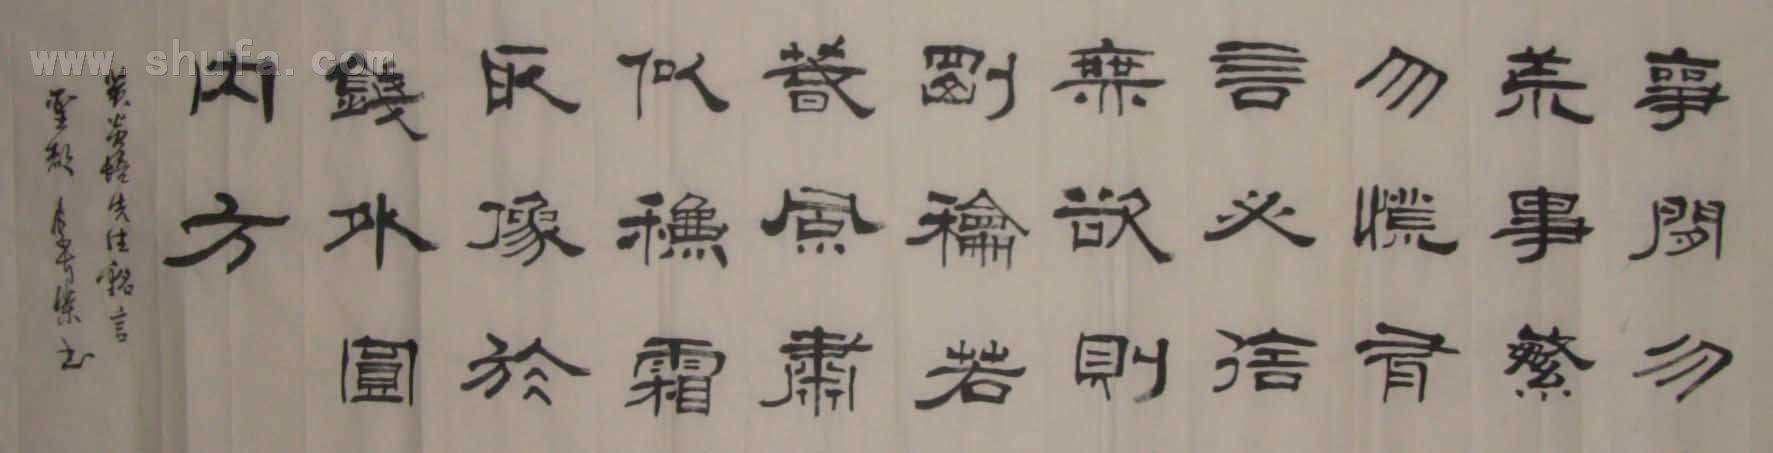 www.shufa.com
事閒勿
荒事繁
勿慌有
言必信
無欲則
剛龢若
春風肅
似秋霜
取像於
錢外圓
内方
黃炎培先生銘言
聖都 書